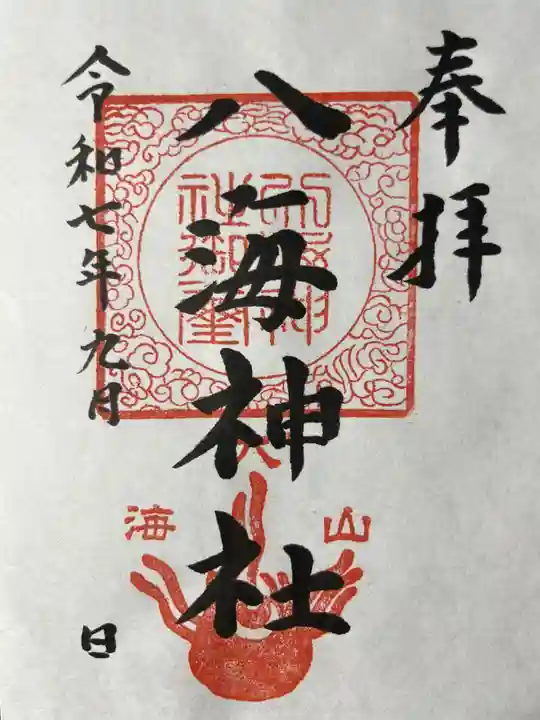 奉拝
八海神社
令和七年九月 日
八
海 山